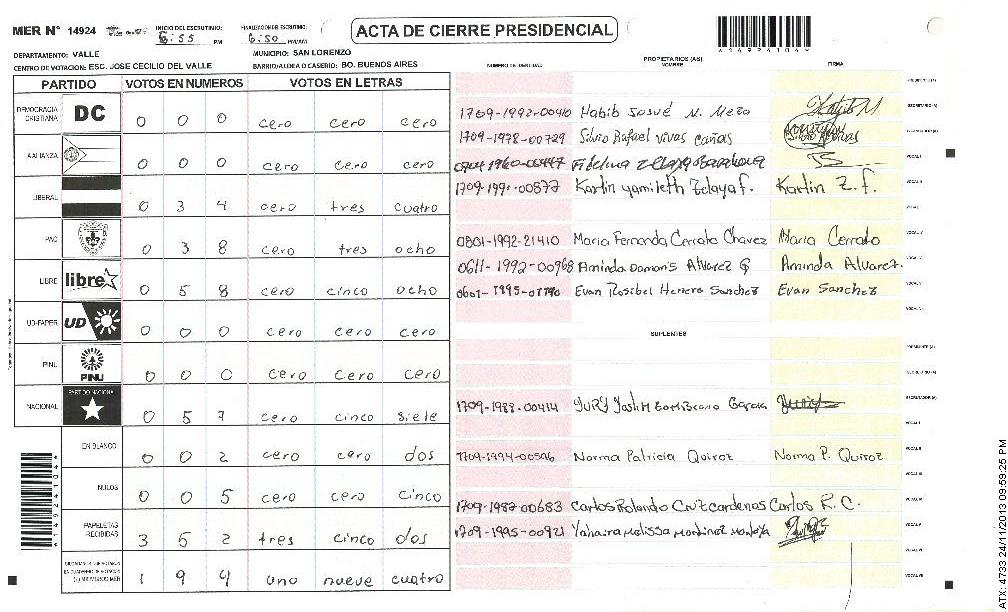 MER N° 14924
INICIO DEL ESCRUTINIO:
6:55 PM
FINALIZACION DEL ESCRUTINIO:
6:50 PM/AM
ACTA DE CIERRE PRESIDENCIAL
DEPARTAMENTO: VALLE
MUNICIPIO: SAN LORENZO
CENTRO DE VOTACION: ESC. JOSE CECILIO DEL VALLE
BARRIO/ALDEA O CASERIO: BO. BUENOS AIRES
PARTIDO VOTOS EN NUMEROS VOTOS EN LETRAS
DEMOCRACIA CRISTIANA DC 0 0 0 cero cero cero
AALIANZA 0 0 0 cero cero cero
LIBERAL 0 3 4 cero tres cuatro
PAC 0 3 8 cero tres ocho
LIBRE libre 0 5 8 cero cinco ocho
UD-FAPER UD 0 0 0 cero cero cero
PINU PINU 0 0 0 cero cero cero
NACIONAL PARTIDO NACIONAL 0 5 7 cero cinco siete
EN BLANCO 0 0 2 cero cero dos
NULOS 0 0 5 cero cero cinco
PAPELETAS RECIBIDAS 3 5 2 tres cinco dos
1 9 4 uno nueve cuatro
NUMERO DE IDENTIDAD PROPIETARIOS (AS) NOMBRE FIRMA
1709-1992-00410 Habib Josué N. Meza
1709-1978-00729 Silvio Rafael vivas cañas
1709-1991-00877 Karlin yamileth Zelaya f. Karlin Z. f.
0801-1992-21410 Maria Fernanda Cerrato Chavez Maria Cerrato
0611-1992-00968 Aminda Damaris Alvarez G Aminda Alvarez.
Evan Rosibel Herrera Sanchez Evan Sanchez
SUPLENTES
1709-1988-00414
Norma Patricia Quiroz Norma P. Quiroz
1709-1987-00683 Carlos Rolando Cruz cardenas Carlos R. C.
1709-1995-00921 Yahaira Melissa Martinez Montoya
ATX: 4733 24/11/2013 09:59:25 PM